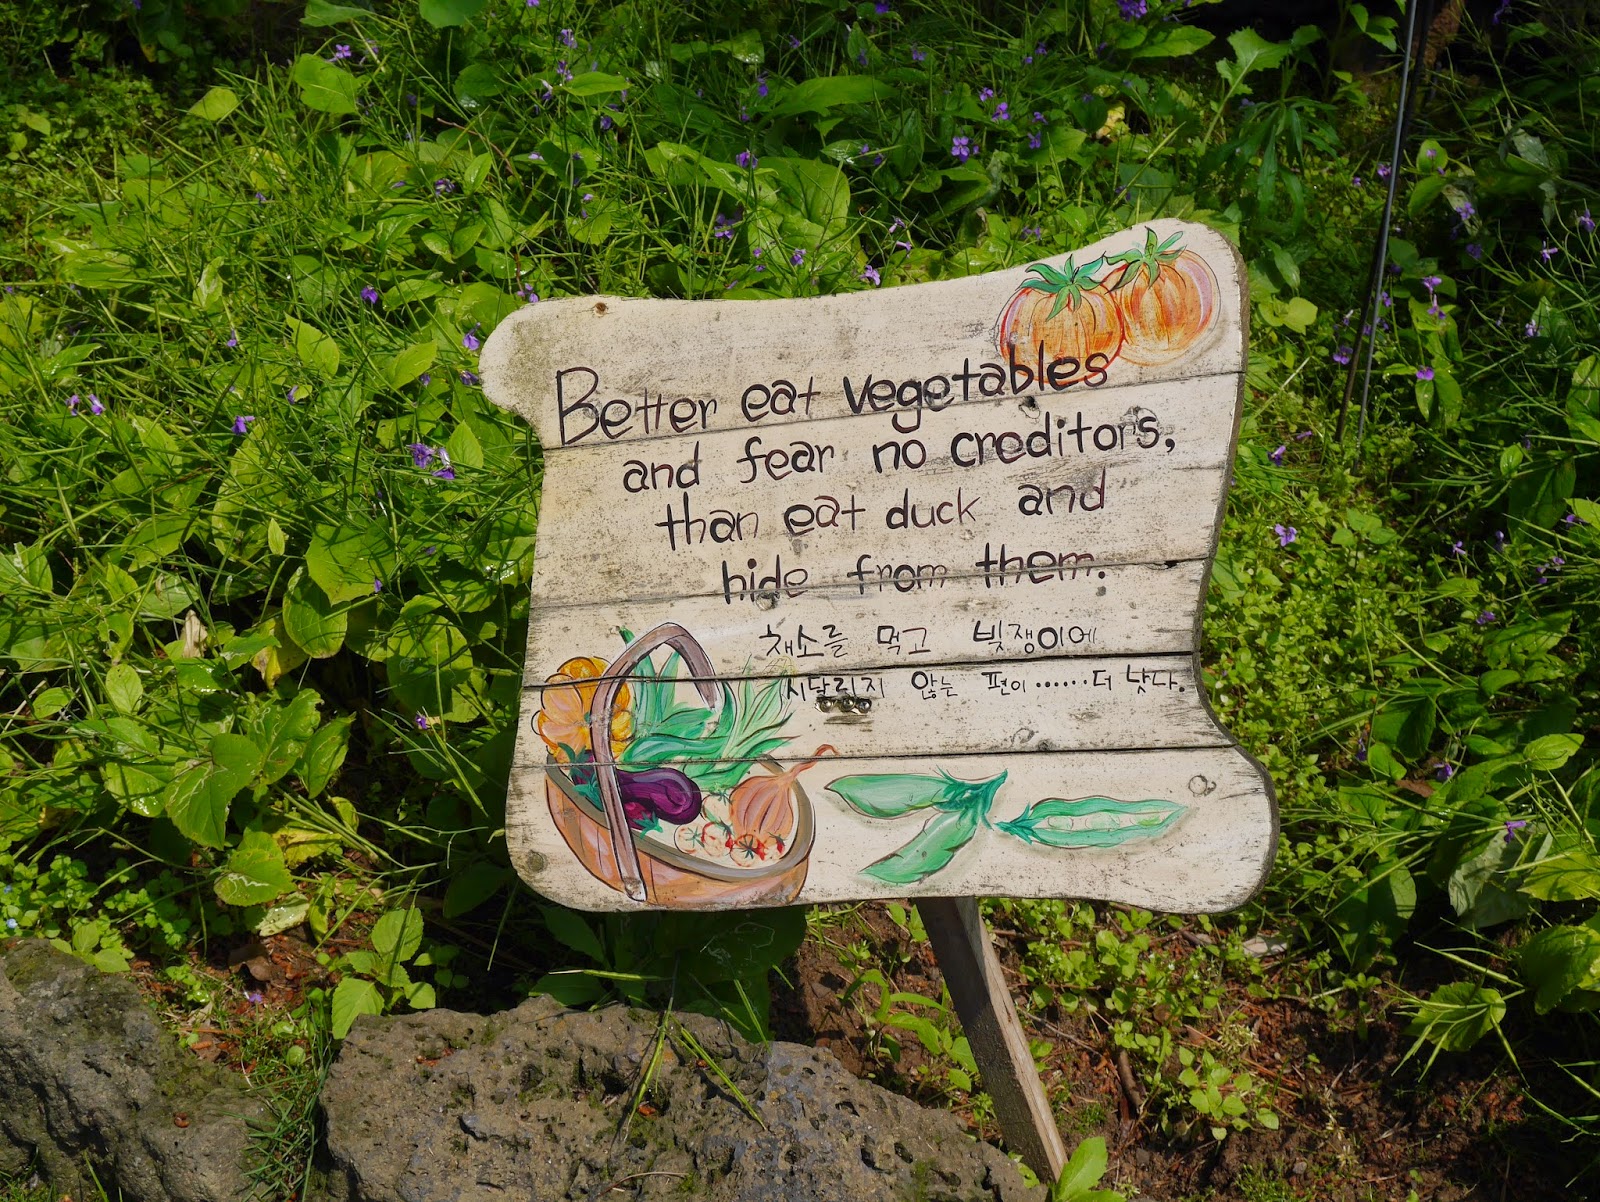 Better eat vegetables
and fear no creditors,
than eat duck and
hide from them.
채소를 먹고 빚쟁이에
시달리지 않는 편이……더 낫다.